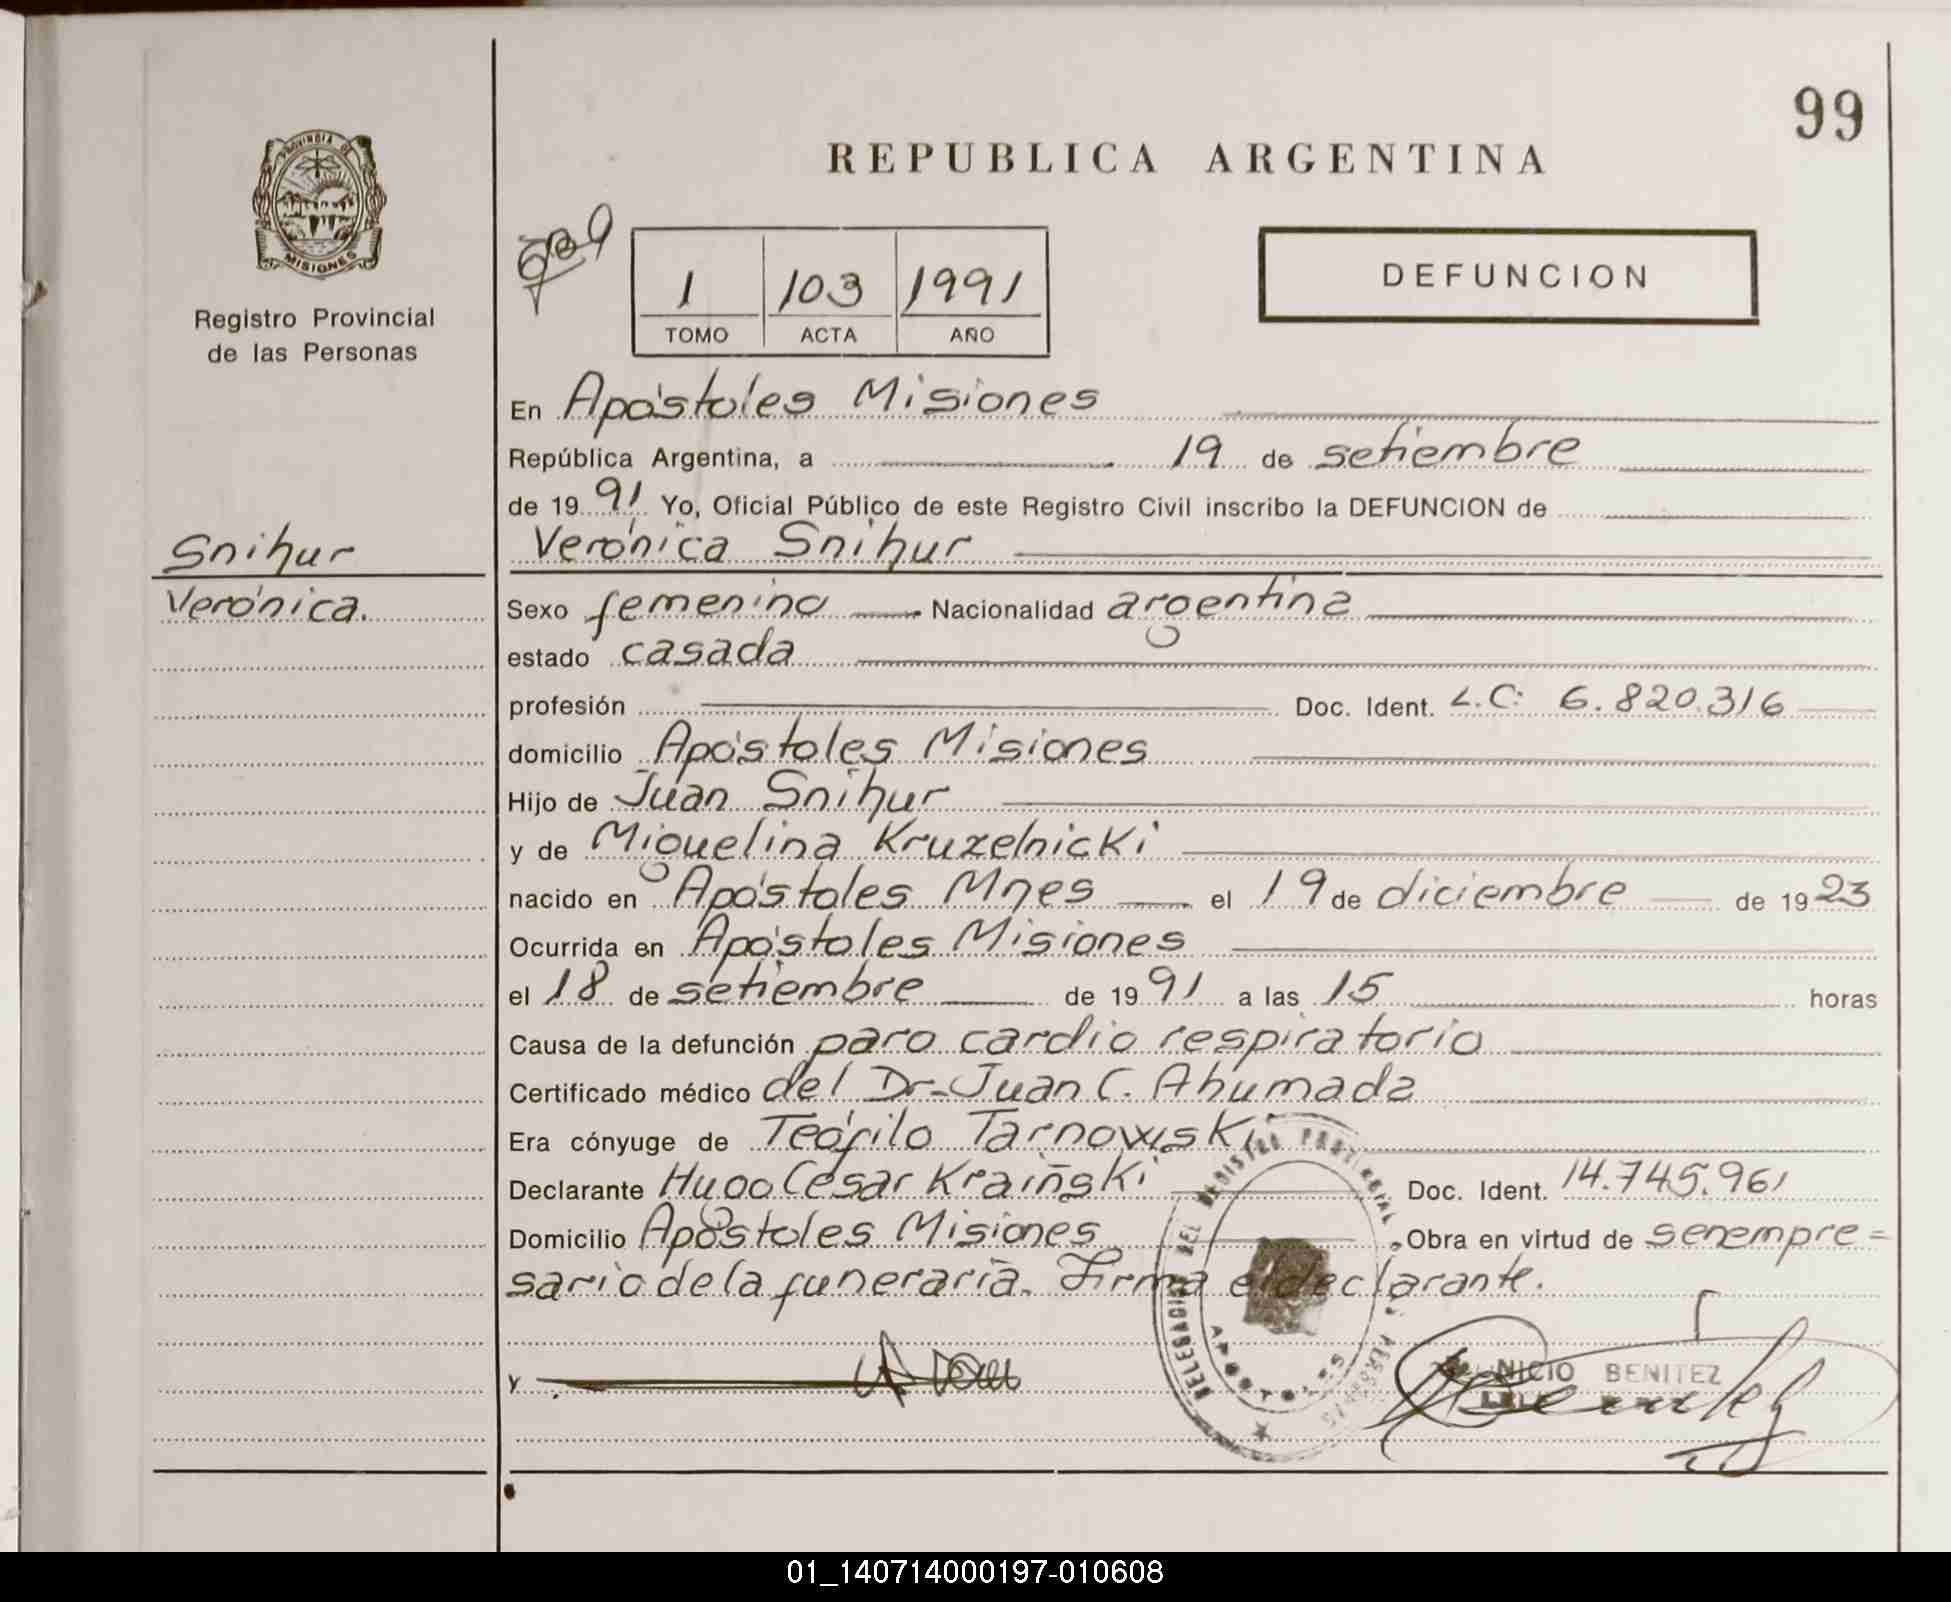 99
REPUBLICA ARGENTINA
PROVINCIA DE
MISIONES
Registro Provincial
de las Personas
1 103 1991
TOMO ACTA AÑO
DEFUNCION
En Apóstoles Misiones
República Argentina, a 19 de setiembre
de 1991 Yo, Oficial Público de este Registro Civil inscribo la DEFUNCION de
Snihur
Verónica Snihur
Verónica.
Sexo femenino Nacionalidad argentina
estado casada
profesión Doc. Ident. L.C: 6.820.316
domicilio Apóstoles Misiones
Hijo de Juan Snihur
y de Miguelina Kruzelnicki
nacido en Apóstoles Mnes el 19 de diciembre de 1923
Ocurrida en Apóstoles Misiones
el 18 de setiembre de 1991 a las 15 horas
Causa de la defunción paro cardio respiratorio
Certificado médico del Dr. Juan C. Ahumada
Era cónyuge de Teófilo Tarnowski
Declarante Hugo César Kraiñski Doc. Ident. 14.745.961
Domicilio Apóstoles Misiones Obra en virtud de ser empre=
sario de la funeraria. Firma el declarante.
y
DELEGACION DEL REGISTRO PROVINCIAL
APOSTOLES
BENITEZ
01_140714000197-010608